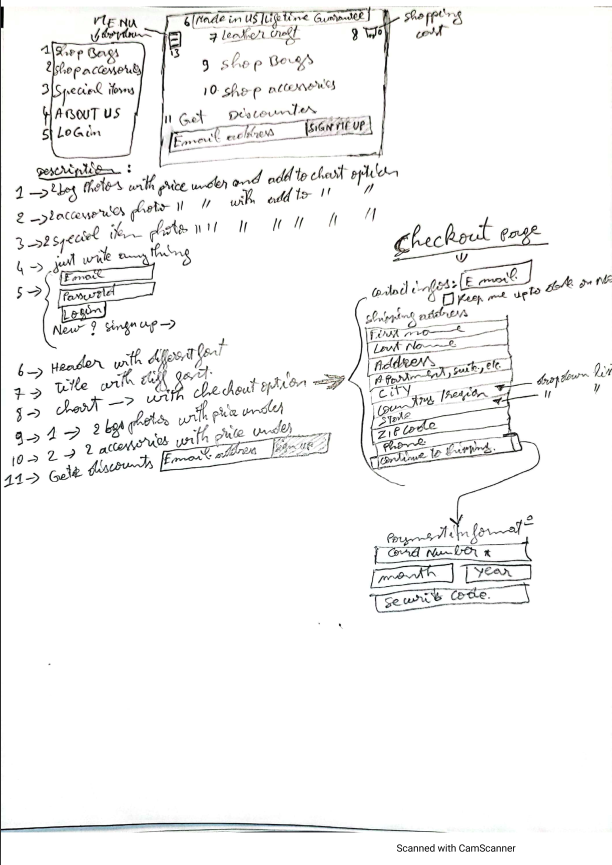 MENU
dropdown
6 Made in US | Lifetime Guarantee
shopping
cart
7 Leather craft
8
13
1 Shop Bags
2 shop accessories
3 Special items
4 ABOUT US
5 LOGin
9 shop Bags
10 shop accessories
11 Get Discountes
Email address SIGN ME UP
Description :
1 → 2 bag Photos with price under and add to chart option
2 → 2 accessories photo " " with add to " "
3 → 2 special item photo " " " " " " "
4 → just write anything
5 → Email
Password
Login
New ? singn up →
6 → Header with different font
7 → Title with diff font.
8 → chart → with checkout option
9 → 1 → 2 bgs photos with price under
10 → 2 → 2 accessories with price under
11 → Gets discounts Email address sign up
Checkout page
contact infos: E mail
Keep me up to date on
shipping address
First name
Last Name
Address
Apartment, suite, etc.
City
Country/region dropdown list
State " "
ZIP code
Phone
Continue to shipping.
Payment informat°
Card Number *
month year
Security code.
Scanned with CamScanner